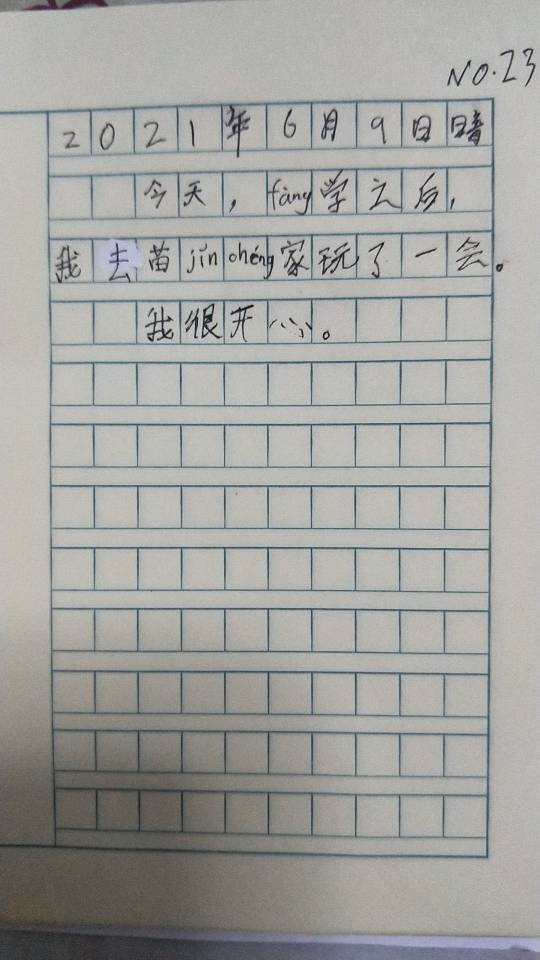 NO.23
2021年6月9日晴
今天，fàng学之后，
我去苗jǐn chéng家玩了一会。
我很开心。